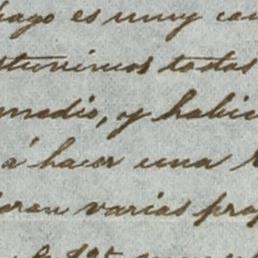 hago es muy ca
stuvimos todas
medio, y habie
á hacer una
eran varias pro